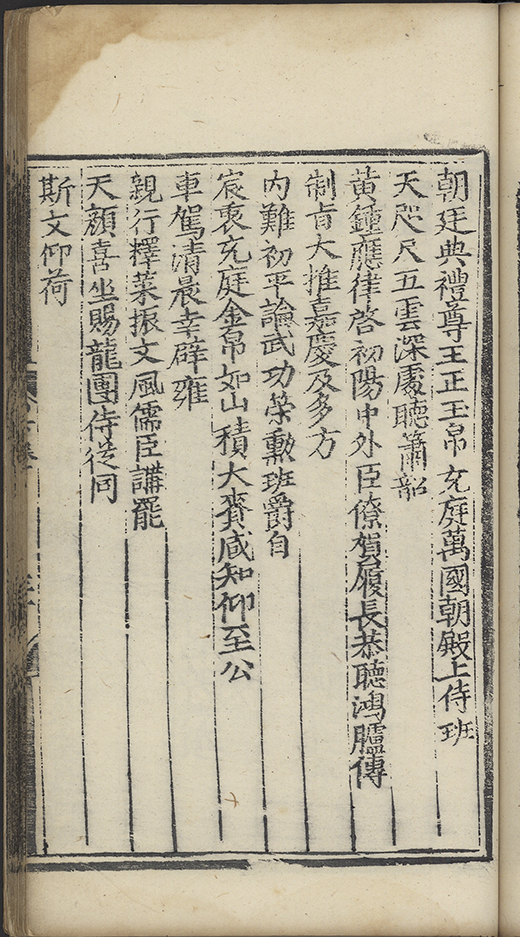 朝廷典禮尊王正玉帛充庭萬國朝殿上侍班
天咫尺五雲深處聽簫韶
黃鐘應律啓初陽中外臣僚賀履長恭聽鴻臚傳
制旨大推嘉慶及多方
內難初平論武功策勳班爵自
宸衷充庭金帛如山積大賚咸知仰至公
車駕清晨幸辟雍
親行釋菜振文風儒臣講罷
天顏喜坐賜龍團侍從同
斯文仰荷